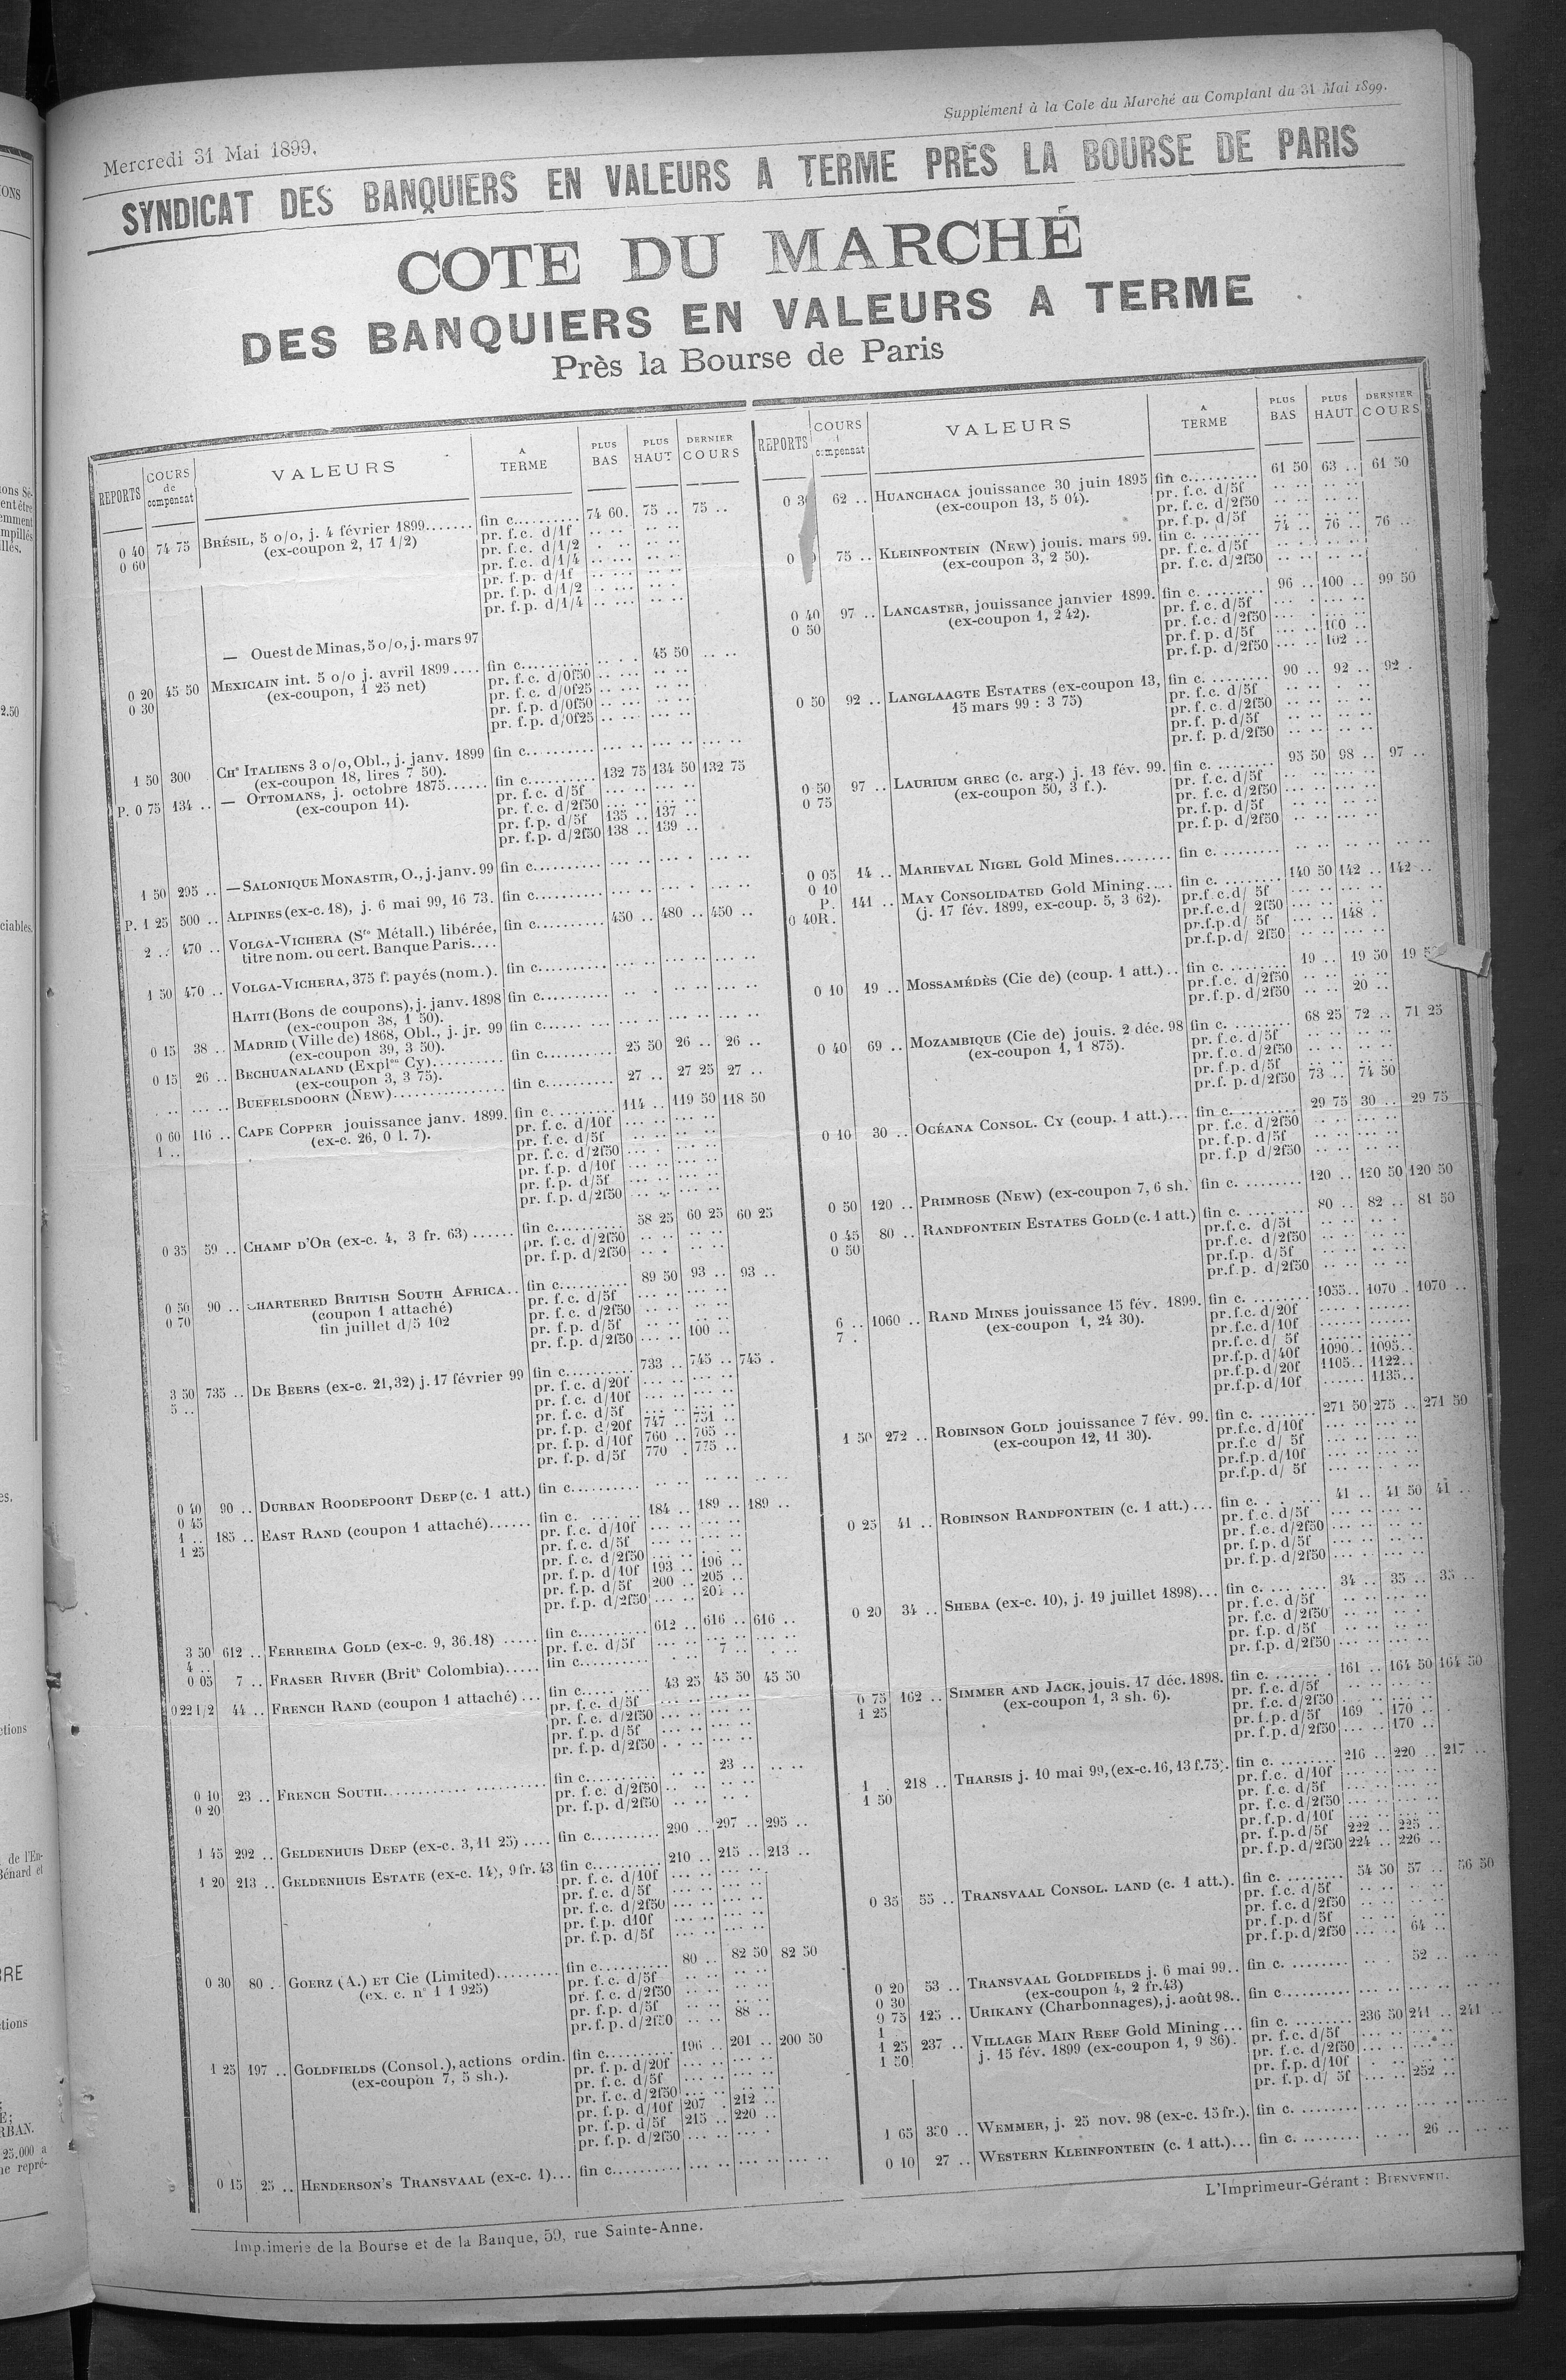 Mercredi 31 Mai 1899.
Supplément à la Cote du Marché au Comptant du 31 Mai 1899.
SYNDICAT DES BANQUIERS EN VALEURS A TERME PRÈS LA BOURSE DE PARIS
COTE DU MARCHÉ
DES BANQUIERS EN VALEURS A TERME
Près la Bourse de Paris
REPORTS COURS de compensat VALEURS A TERME PLUS BAS PLUS HAUT DERNIER COURS
0 40 74 75 BRÉSIL, 5 o/o, j. 4 février 1899....... fin c.......... 74 60. 75 .. 75 ..
0 60 (ex-coupon 2, 17 1/2) pr. f.c. d/1f
pr. f.c. d/1/2
pr. f.c. d/1/4
pr. f.p. d/1f
pr. f.p. d/1/2
pr. f.p. d/1/4
— Ouest de Minas, 5 o/o, j. mars 97
0 20 45 50 MEXICAIN int. 5 o/o j. avril 1899.... fin c.......... 45 50
0 30 (ex-coupon, 1 25 net) pr. f.c. d/0f50
pr. f.c. d/0f25
pr. f.p. d/0f50
pr. f.p. d/0f25
1 50 300 CHⁿ ITALIENS 3 o/o, Obl., j. janv. 1899 fin c..........
(ex-coupon 18, lires 7 50).
P. 0 75 134 .. — OTTOMANS, j. octobre 1875...... fin c.......... 132 75 134 50 132 75
(ex-coupon 11). pr. f.c. d/5f
pr. f.c. d/2f50
pr. f.p. d/5f 135 .. 137 ..
pr. f.p. d/2f50 138 .. 139 ..
1 50 295 .. — SALONIQUE MONASTIR, O., j. janv. 99 fin c..........
P. 1 25 500 .. ALPINES (ex-c. 18), j. 6 mai 99, 16 73. fin c..........
2 .. 470 .. VOLGA-VICHERA (Sᵗᵉ Métall.) libérée, fin c.......... 450 .. 480 .. 450 ..
titre nom. ou cert. Banque Paris....
1 50 470 .. VOLGA-VICHERA, 375 f. payés (nom.). fin c..........
HAITI (Bons de coupons), j. janv. 1898 fin c..........
(ex-coupon 38, 1 50).
0 15 38 .. MADRID (Ville de) 1868, Obl., j. jr. 99 fin c......
(ex-coupon 39, 3 50).
0 15 26 .. BECHUANALAND (Explᵒⁿ Cy).......... fin c.......... 25 50 26 .. 26 ..
(ex-coupon 3, 3 75).
BUEFELSDOORN (NEW)................ fin c.......... 27 .. 27 25 27 ..
0 60 116 .. CAPE COPPER jouissance janv. 1899. fin c.......... 114 .. 119 50 118 50
1 .. (ex-c. 26, 0 l. 7). pr. f.c. d/10f
pr. f.c. d/5f
pr. f.c. d/2f50
pr. f.p. d/10f
pr. f.p. d/5f
pr. f.p. d/2f50
0 35 59 .. CHAMP D'OR (ex-c. 4, 3 fr. 63)...... fin c.......... 58 25 60 25 60 25
pr. f.c. d/2f50
pr. f.p. d/2f50
0 50 90 .. CHARTERED BRITISH SOUTH AFRICA.. fin c.......... 89 50 93 .. 93 ..
0 70 (coupon 1 attaché) pr. f.c. d/5f
fin juillet d/5 102 pr. f.c. d/2f50
pr. f.p. d/5f
pr. f.p. d/2f50 100 ..
3 50 735 .. DE BEERS (ex-c. 21,32) j. 17 février 99 fin c.......... 733 .. 745 .. 745 .
5 .. pr. f.c. d/20f
pr. f.c. d/10f
pr. f.c. d/5f
pr. f.p. d/20f 747 .. 751 ..
pr. f.p. d/10f 760 .. 765 ..
pr. f.p. d/5f 770 . 775 ..
0 40 90 .. DURBAN ROODEPOORT DEEP (c. 1 att.) fin c..........
0 45
1 .. 185 .. EAST RAND (coupon 1 attaché)...... fin c. 184 .. 189 .. 189 ..
1 25 pr. f.c. d/10f
pr. f.c. d/5f
pr. f.c. d/2f50
pr. f.p. d/10f 193 .. 196 ..
pr. f.p. d/5f 200 .. 205 ..
pr. f.p. d/2f50 204 ..
3 50 612 .. FERREIRA GOLD (ex-c. 9, 36.18)..... fin c.......... 612 .. 616 .. 616 ..
4 .. pr. f.c. d/5f
0 05 7 .. FRASER RIVER (Britʰ Colombia)..... fin c.......... 7 ..
0 22 1/2 44 .. FRENCH RAND (coupon 1 attaché)... fin c. 43 25 45 50 45 50
pr. f.c. d/5f
pr. f.c. d/2f50
pr. f.p. d/5f
pr. f.p. d/2f50
0 10 23 .. FRENCH SOUTH.................... fin c.......... 23 ..
0 20 pr. f.c. d/2f50
pr. f.p. d/2f50
1 45 292 .. GELDENHUIS DEEP (ex-c. 3, 11 25).... fin c.......... 290 .. 297 .. 295 ..
1 20 213 .. GELDENHUIS ESTATE (ex-c. 14), 9 fr. 43 fin c.......... 210 .. 215 .. 213 ..
pr. f.c. d/10f
pr. f.c. d/5f
pr. f.c. d/2f50
pr. f.p. d10f
pr. f.p. d/5f
0 30 80 .. GOERZ (A.) ET Cie (Limited)......... fin c.......... 80 .. 82 50 82 50
(ex. c. n° 1 1 925) pr. f.c. d/5f
pr. f.c. d/2f50
pr. f.p. d/5f
pr. f.p. d/2f50 88 ..
1 25 197 .. GOLDFIELDS (Consol.), actions ordin. fin c.......... 196 .. 201 .. 200 50
(ex-coupon 7, 5 sh.). pr. f.p. d/20f
pr. f.c. d/5f
pr. f.c. d/2f50
pr. f.p. d/10f 207 . 212 ..
pr. f.p. d/5f 215 .. 220 ..
pr. f.p. d/2f50
0 15 25 .. HENDERSON'S TRANSVAAL (ex-c. 1)... fin c..........
Imprimerie de la Bourse et de la Banque, 59, rue Sainte-Anne.
REPORTS COURS compensat VALEURS A TERME PLUS BAS PLUS HAUT DERNIER COURS
62 .. HUANCHACA jouissance 30 juin 1895 fin c.......... 61 50 63 .. 61 50
(ex-coupon 13, 5 04). pr. f.c. d/5f
pr. f.c. d/2f50
pr. f.p. d/5f
75 .. KLEINFONTEIN (NEW) jouis. mars 99. fin c. ........ 74 .. 76 .. 76 ..
(ex-coupon 3, 2 50). pr. f.c. d/5f
pr. f.c. d/2f50
0 40 97 .. LANCASTER, jouissance janvier 1899. fin c. ........ 96 .. 100 .. 99 50
0 50 (ex-coupon 1, 2 42). pr. f.c. d/5f
pr. f.c. d/2f50
pr. f.p. d/5f 100 ..
pr. f.p. d/2f50 102 ..
0 50 92 .. LANGLAAGTE ESTATES (ex-coupon 13, fin c. ........ 90 .. 92 .. 92 .
15 mars 99 : 3 75) pr. f.c. d/5f
pr. f.c. d/2f50
pr. f. p. d/5f
pr. f. p. d/2f50
0 50 97 .. LAURIUM GREC (c. arg.) j. 13 fév. 99. fin c. ........ 95 50 98 .. 97 ..
0 75 (ex-coupon 50, 3 f.). pr. f.c. d/5f
pr. f.c. d/2f50
pr. f.p. d/5f
pr. f.p. d/2f50
0 05 14 .. MARIEVAL NIGEL Gold Mines........ fin c. ........
0 10
P. 141 .. MAY CONSOLIDATED Gold Mining.... fin c. ........ 140 50 142 .. 142 ..
0 40R. (j. 17 fév. 1899, ex-coup. 5, 3 62). pr.f.c.d/ 5f
pr.f.c.d/ 2f50
pr.f.p.d/ 5f 148 .
pr.f.p.d/ 2f50
0 10 19 .. MOSSAMÉDÈS (Cie de) (coup. 1 att.).. fin c. ........ 19 .. 19 50 19
pr.f.c. d/2f50
pr.f.p. d/2f50 20 ..
0 40 69 .. MOZAMBIQUE (Cie de) jouis. 2 déc. 98 fin c. ........ 68 25 72 .. 71 25
(ex-coupon 1, 1 875). pr. f.c. d/5f
pr. f.c. d/2f50
pr. f.p. d/5f
pr.f. p. d/2f50 73 .. 74 50
0 10 30 .. OCÉANA CONSOL. CY (coup. 1 att.)... fin c. ........ 29 75 30 .. 29 75
pr. f.c. d/2f50
pr. f.p. d/5f
pr. f.p d/2f50
0 50 120 .. PRIMROSE (NEW) (ex-coupon 7, 6 sh. fin c. ........ 120 .. 120 50 120 50
0 45 80 .. RANDFONTEIN ESTATES GOLD (c. 1 att.) fin c. ........ 80 .. 82 .. 81 50
0 50 pr.f.c. d/5f
pr.f.c. d/2f50
pr.f.p. d/5f
pr.f.p. d/2f50
6 .. 1060 .. RAND MINES jouissance 15 fév. 1899. fin c. ........ 1055.. 1070 .. 1070 ..
7 . (ex-coupon 1, 24 30). pr.f.c. d/20f
pr.f.c. d/10f
pr.f.c. d/ 5f
pr.f.p. d/40f 1090.. 1095..
pr.f.p. d/20f 1105.. 1122..
pr.f.p. d/10f 1135..
1 50 272 .. ROBINSON GOLD jouissance 7 fév. 99. fin c. ........ 271 50 275 .. 271 50
(ex-coupon 12, 11 30). pr.f.c. d/10f
pr.f.c d/ 5f
pr.f.p. d/10f
pr.f.p. d/ 5f
0 25 41 .. ROBINSON RANDFONTEIN (c. 1 att.)... fin c. 41 .. 41 50 41 ..
pr. f.c. d/5f
pr. f.c. d/2f50
pr. f.p. d/5f
pr. f.p. d/2f50
0 20 34 .. SHEBA (ex-c. 10), j. 19 juillet 1898)... fin c. 34 .. 35 .. 35 ..
pr. f.c. d/5f
pr. f.c. d/2f50
pr. f.p. d/5f
pr. f.p. d/2f50
0 75 162 .. SIMMER AND JACK, jouis. 17 déc. 1898. fin c. 161 .. 164 50 164 50
1 25 (ex-coupon 1, 3 sh. 6). pr. f.c. d/5f
pr. f.c. d/2f50
pr. f.p. d/5f 169 .. 170 ..
pr. f.p. d/2f50 170 ..
1 . 218 .. THARSIS j. 10 mai 99, (ex-c. 16, 13 f. 75). fin c. ........ 216 .. 220 .. 217 ..
1 50 pr. f.c. d/10f
pr. f.c. d/5f
pr. f.c. d/2f50
pr. f.p. d/10f
pr. f.p. d/5f 222 .. 225 ..
pr. f.p. d/2f50 224 .. 226 ..
0 35 55 .. TRANSVAAL CONSOL. LAND (c. 1 att.). fin c. ........ 54 50 57 .. 56 50
pr. f.c. d/5f
pr. f.c. d/2f50
pr. f.p. d/5f
pr. f.p. d/2f50 64 ..
0 20 53 .. TRANSVAAL GOLDFIELDS j. 6 mai 99.. fin c. ........ 52 ..
0 30 (ex-coupon 4, 2 fr.43)
0 75 125 .. URIKANY (Charbonnages), j. août 98.. fin c..........
1 .
1 25 237 .. VILLAGE MAIN REEF Gold Mining... fin c. ........ 236 50 241 .. 241 ..
1 50 j. 15 fév. 1899 (ex-coupon 1, 9 86). pr. f.c. d/5f
pr. f.c. d/2f50
pr. f.p. d/10f
pr. f.p. d/ 5f 252 ..
1 65 330 .. WEMMER, j. 25 nov. 98 (ex-c. 15 fr.). fin c. ........
0 10 27 .. WESTERN KLEINFONTEIN (c. 1 att.)... fin c. ........ 26 ..
L'Imprimeur-Gérant : BIENVENU.